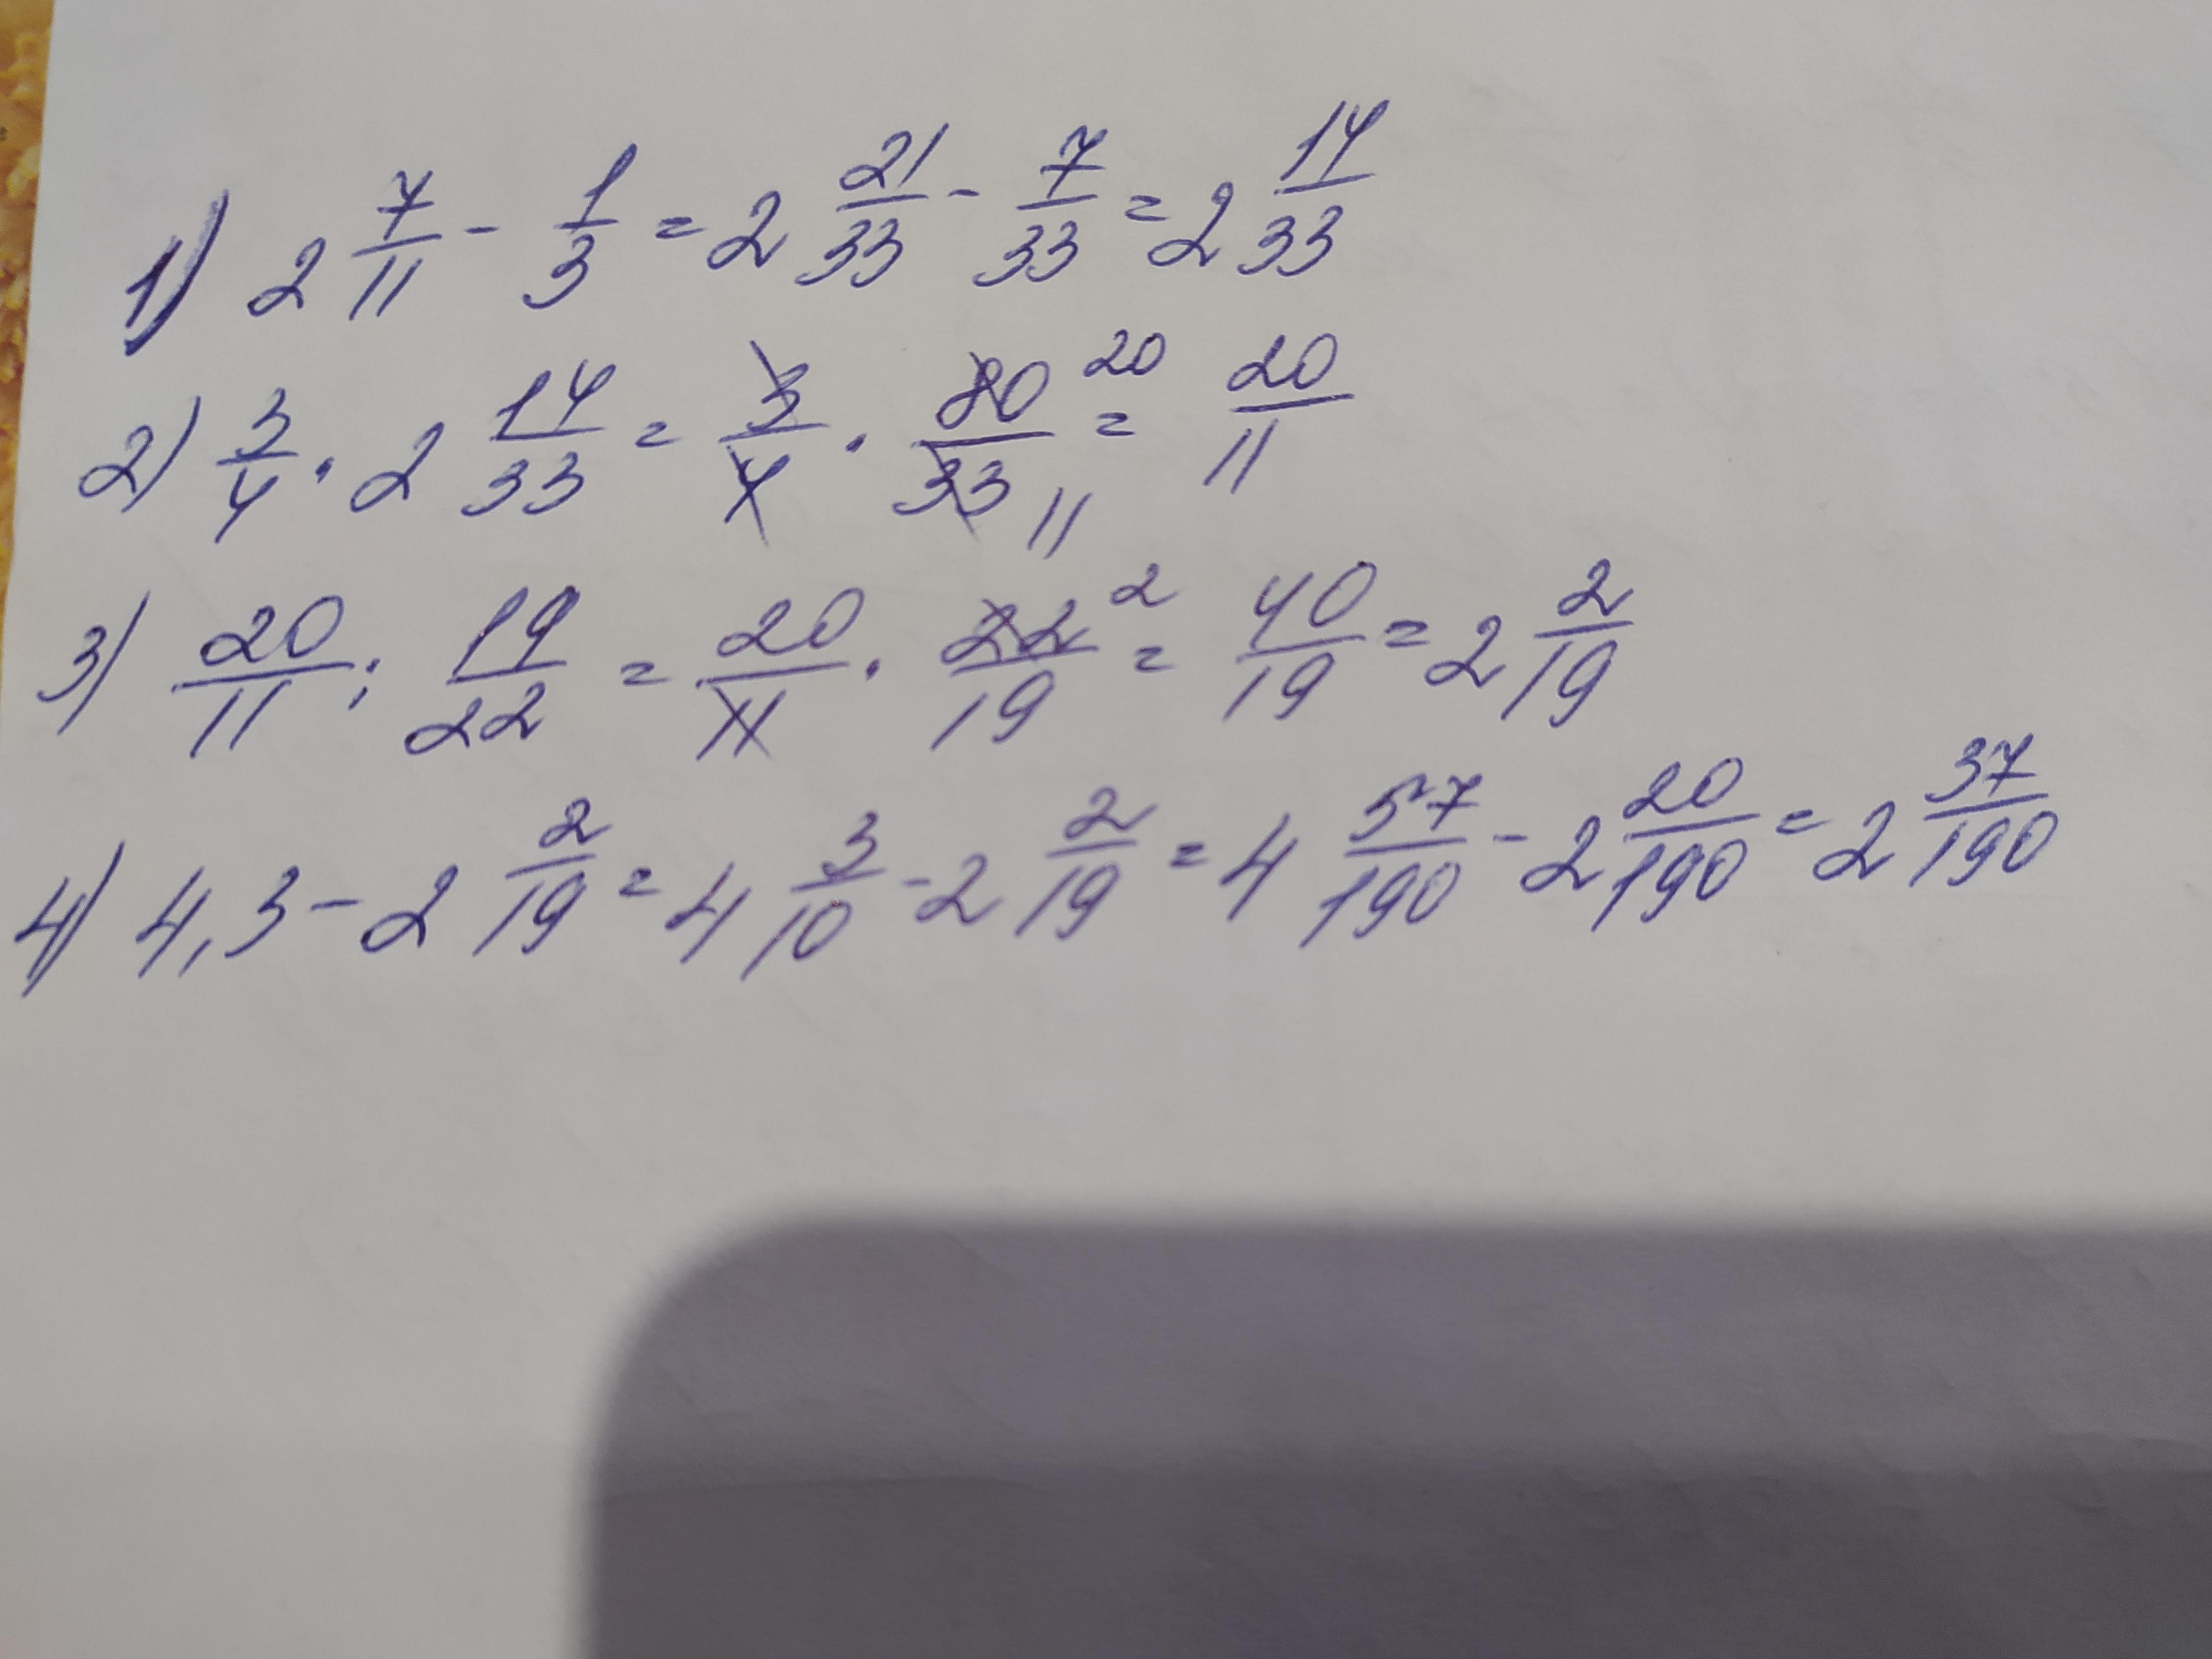 1) 2 7/11 - 1/3 = 2 21/33 - 7/33 = 2 14/33
2) 3/4 · 2 14/33 = 3/4 · 80/33 20 11 = 20/11
3) 20/11 : 19/22 = 20/11 · 22/19 2 = 40/19 = 2 2/19
4) 4,3 - 2 2/19 = 4 3/10 - 2 2/19 = 4 57/190 - 2 20/190 = 2 37/190